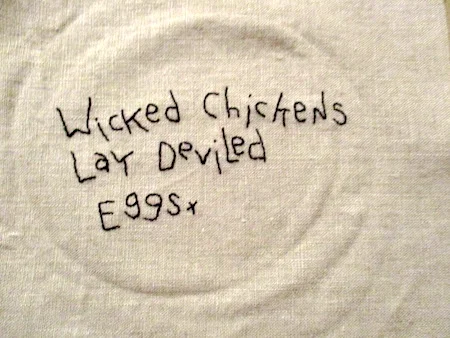 Wicked Chickens
Lay Deviled
Eggs.